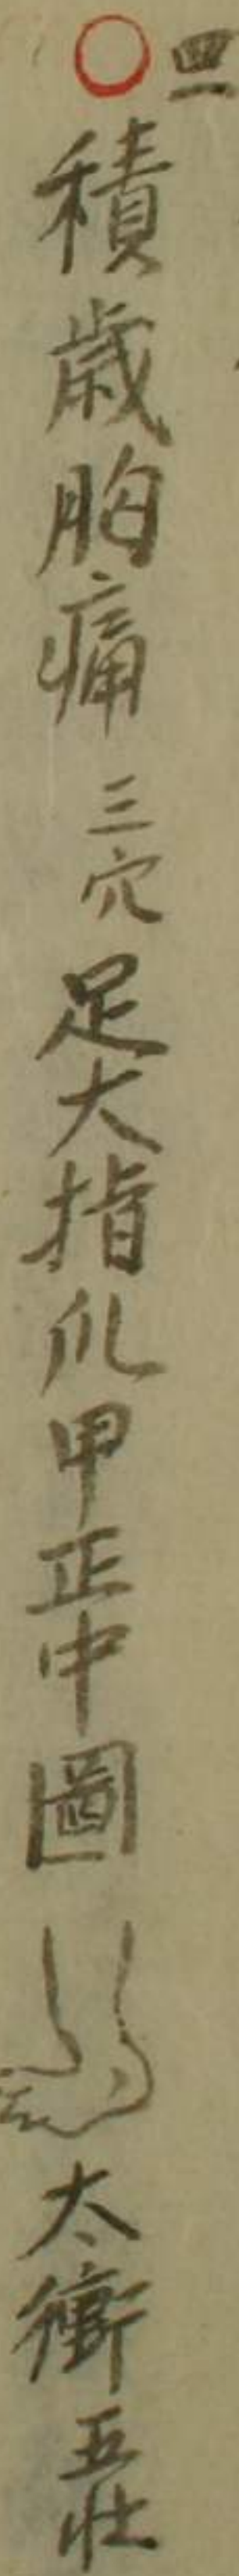 四一
積歳胸痛 三穴 足大指爪甲正中圖 太衝 五壮